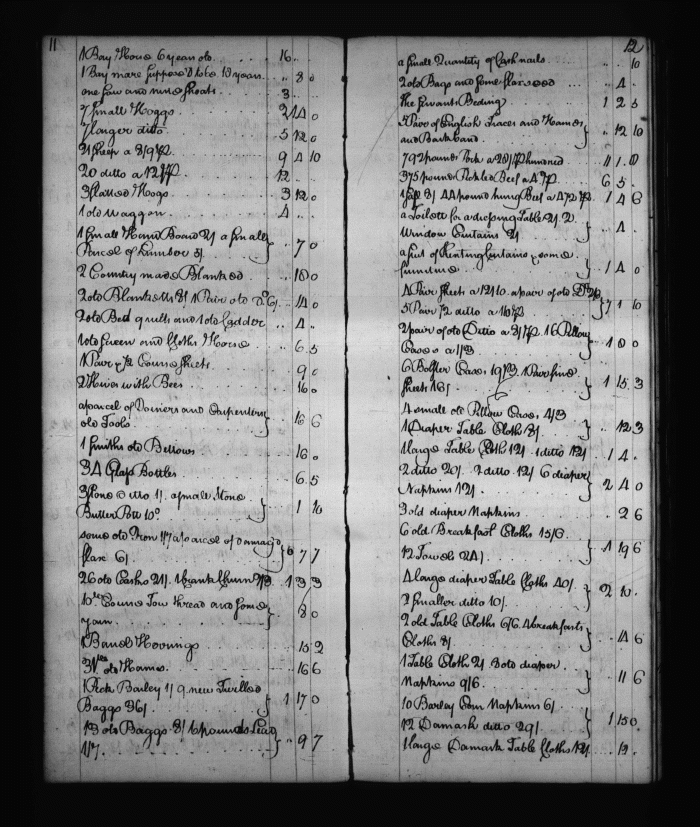 11
1 Bay Horse 6 year old . . . 16 . .
1 Bay mare suppos'd to be 10 years . . . 8 0
one sow and nine shoats . . 3 . .
7 small Hoggs . . . 2 14 0
7 larger ditto . . . 5 12 0
21 sheep a 8/9 . . . 9 4 10
20 ditto a 12/ . . . 12 . .
3 fatted Hoggs . . . 3 12 0
1 old waggon . . . 4 . .
1 small Hand Board 2/ a small }
Parcel of Lumber 5/ . . . } 7 0
2 Country made Blanked . . . 18 0
2 old Blanketts 8/ 1 Pair old Do 6/ . . 14 0
2 old Bed quilts and 1 old Ladder . . 4 . .
1 old Screen and Cloths Horse . . 6. 5
1 Pair & 1/2 Course sheets . . . 9 0
2 Hives with Bees . . . 16 0
a parcel of Joiners and Carpenters }
old Tools . . . } 16 6
1 smiths old Bellows . . . 16 0
34 Glass Bottles . . . 6. 5
3 stone ditto 1/. a small stone }
Butter Pott 10d . . . } 1 10
some old Iron 1/7 a parcel of Damag'd }
flax 6/ . . . } 7 7
26 old Casks 21/. 1 1 3 3
10 lb Course Tow thread and some }
yarn . . . } 8 0
1 Barrel . . . 15 2
old Hames . . . 16 6
1 Peck Barley 1/ 9 new Twilled }
Baggs 36/ . . . } 1 17 0
13 old Baggs 8/ 6 pounds Lead }
1/7 . . . } 9 7
12
a small Quantity of nails . . . 10
2 old Bags and some flax seed . . 4 .
the servants Beding . . . 1 2 5
5 Pair of English Traces and Hames }
and Backband . . . } 12 10
792 pounds Pork a hundred . . 11 1. 0
375 pounds Pickled Beef a 4 . . 6 5 .
44 pound hung Beef a . . 1 4 6
a Toilett for a dressing Table 2/. 2 }
Window Curtains 2/ . . . } 4 .
a sut of Curtains & some }
furniture . . . } 1 4 0
4 Pair sheets a 12/10. a pair of old Do }
5 Pair 1/2 ditto a . . . } 7 1 10
2 pair of old Ditto a 3/7. 16 Pillow }
Cases a 1/3 . . . } 1 0 0
6 Bolster Cases 1 Pair fine }
sheets 16/ . . . } 1 15 3
4 small old Pillow Cases 4/3 }
1 Diaper Table Cloth 8/. . . } 12 3
1 large Table Cloth 12/. 1 ditto 12/ 1 4 .
2 ditto 20/. 2 ditto 12/ 6 diaper }
Napkins 12/ . . . } 2 4 0
3 old diaper Napkins . . . 2 6
6 old Breakfast Cloths 15/6 . }
12 Towels 24/ . . . } 1 19 6
4 large diaper Table Cloths 40/. }
2 smaller ditto 10/ . . . } 2 10.
2 old Table Cloths 6/6. 4 breakfasts }
Cloths 8/ . . . } 14 6
1 Table Cloth 2/. 8 old diaper }
Napkins 9/6 . . . } 11 6
10 Barley Corn Napkins 6/ . . }
12 Damask ditto 29/ . . . } 1 15 0
1 large Damask Table Cloths 12/. . 12 .